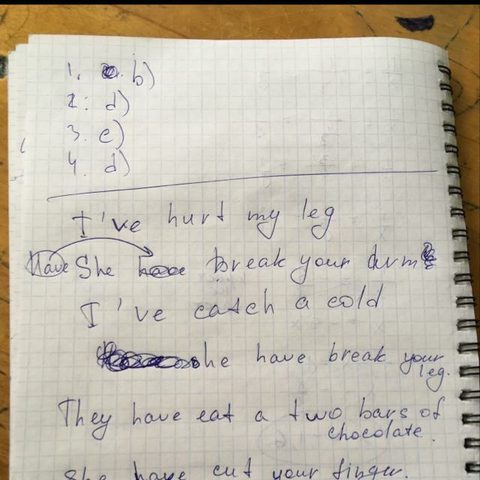 1. b)
2: d)
3. c)
4. d)
I've hurt my leg
Have She have break your arm
I've catch a cold
she have break your
leg.
They have eat a two bars of
chocolate.
She have cut your finger.